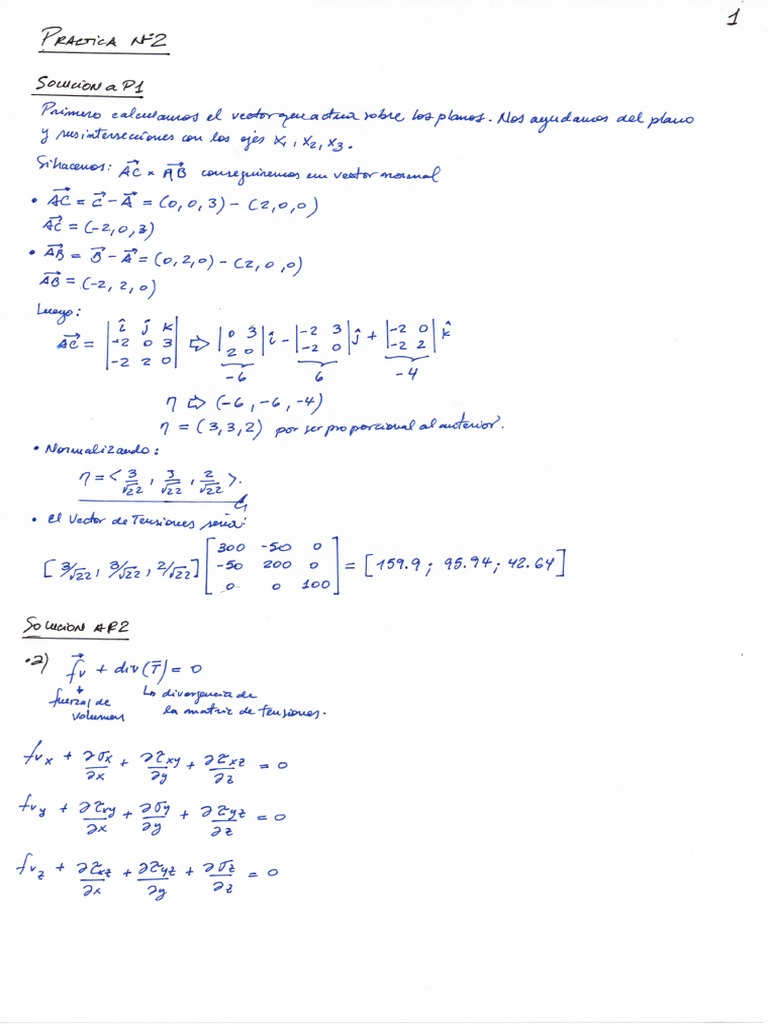 1
PRACTICA Nº2
SOLUCION a P1
Primero calculamos el vector que actua sobre los planos. Nos ayudamos del plano
y sus intersecciones con los ejes X₁, X₂, X₃.
Si hacemos: AC⃗ × AB⃗ conseguiremos un vector normal
• AC⃗ = C⃗ - A⃗ = (0,0,3) - (2,0,0)
AC⃗ = (-2,0,3)
• AB⃗ = B⃗ - A⃗ = (0,2,0) - (2,0,0)
AB⃗ = (-2,2,0)
Luego:
AC⃗ = |î ĵ k; -2 0 3; -2 2 0| ⇨ |0 3; 2 0| î - |-2 3; -2 0| ĵ + |-2 0; -2 2| k̂
-6 6 -4
η ⇨ (-6, -6, -4)
η = (3,3,2) por ser proporcional al anterior.
• Normalizando:
η = <3/√22, 3/√22, 2/√22>.
• el Vector de Tensiones seria:
[3/√22, 3/√22, 2/√22] [300 -50 0; -50 200 0; 0 0 100] = [159.9; 95.94; 42.64]
SOLUCION A P2
•a) f⃗v + div(T̄) = 0
fuerzas de volumen
La divergencia de
la matriz de tensiones.
fvx + ∂σx/∂x + ∂τxy/∂y + ∂τxz/∂z = 0
fvy + ∂τxy/∂x + ∂σy/∂y + ∂τyz/∂z = 0
fvz + ∂τxz/∂x + ∂τyz/∂y + ∂σz/∂z = 0